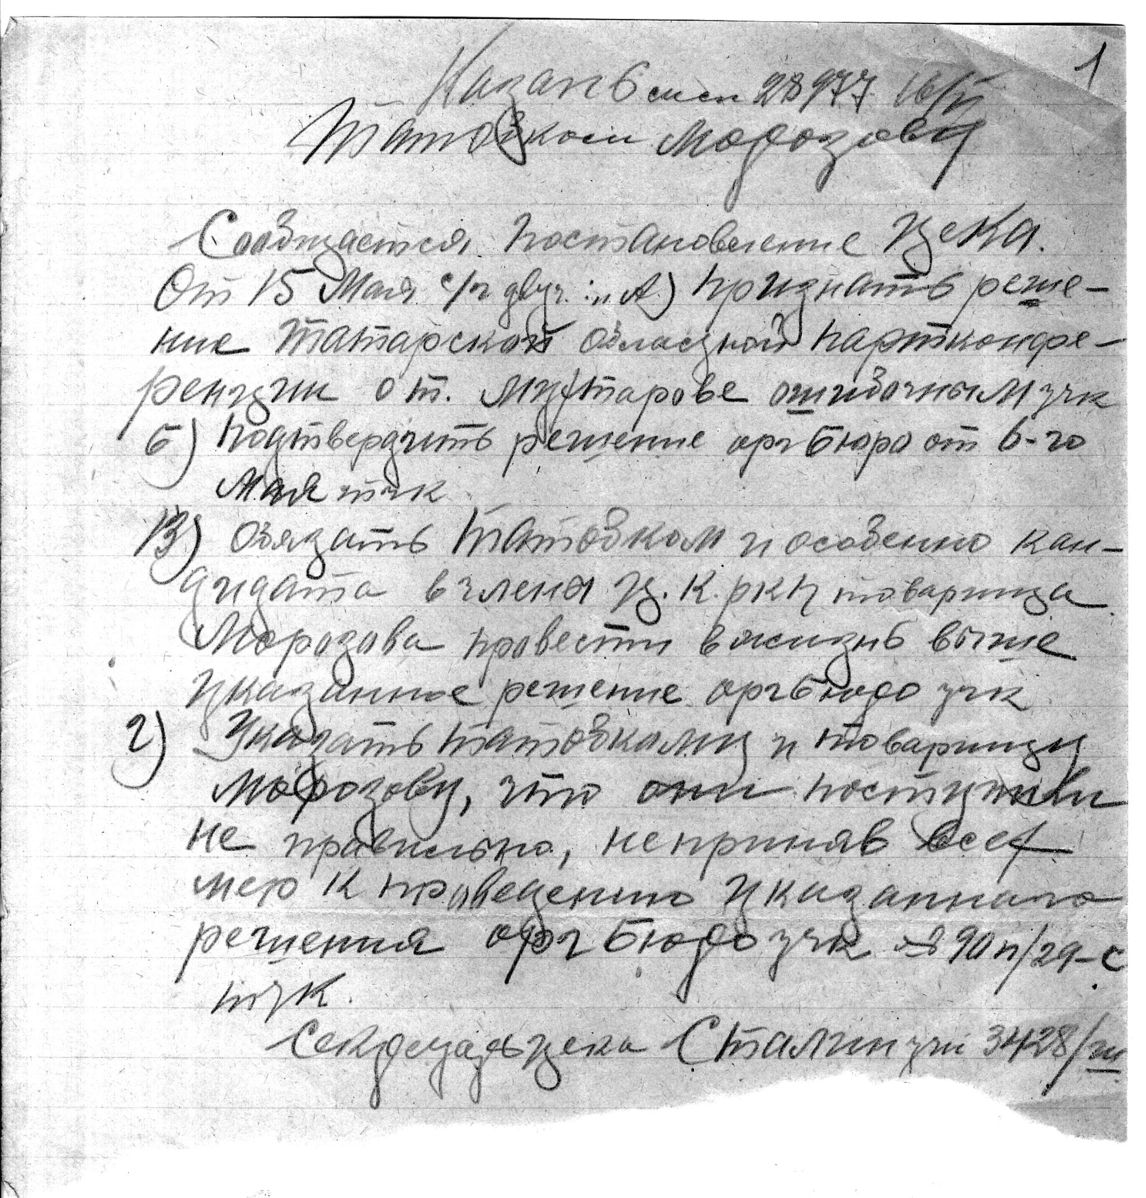 1
Казань 28977 16/V
Татобком Морозову
Сообщается постановление Цека.
От 15 Мая с/г двч. :"А) признать реше-
ние Татарской областной партконфе-
ренции о т. Мухтарове ошибочным тчк
Б) подтвердить решение оргбюро от 6-го
Мая тчк
В) Обязать Татобком и особенно кан-
дидата в члена Ц.К. РКП товарища
Морозова провести в жизнь выше
указанное решение оргбюро тчк
г) Указать Татобкому и товарищу
Морозову, что они поступили
не правильно, не приняв всех
мер к проведению указанного
решения оргбюро тчк № 90п/29-с
тчк.
Секретарь цека Сталин тчк 3428/ш